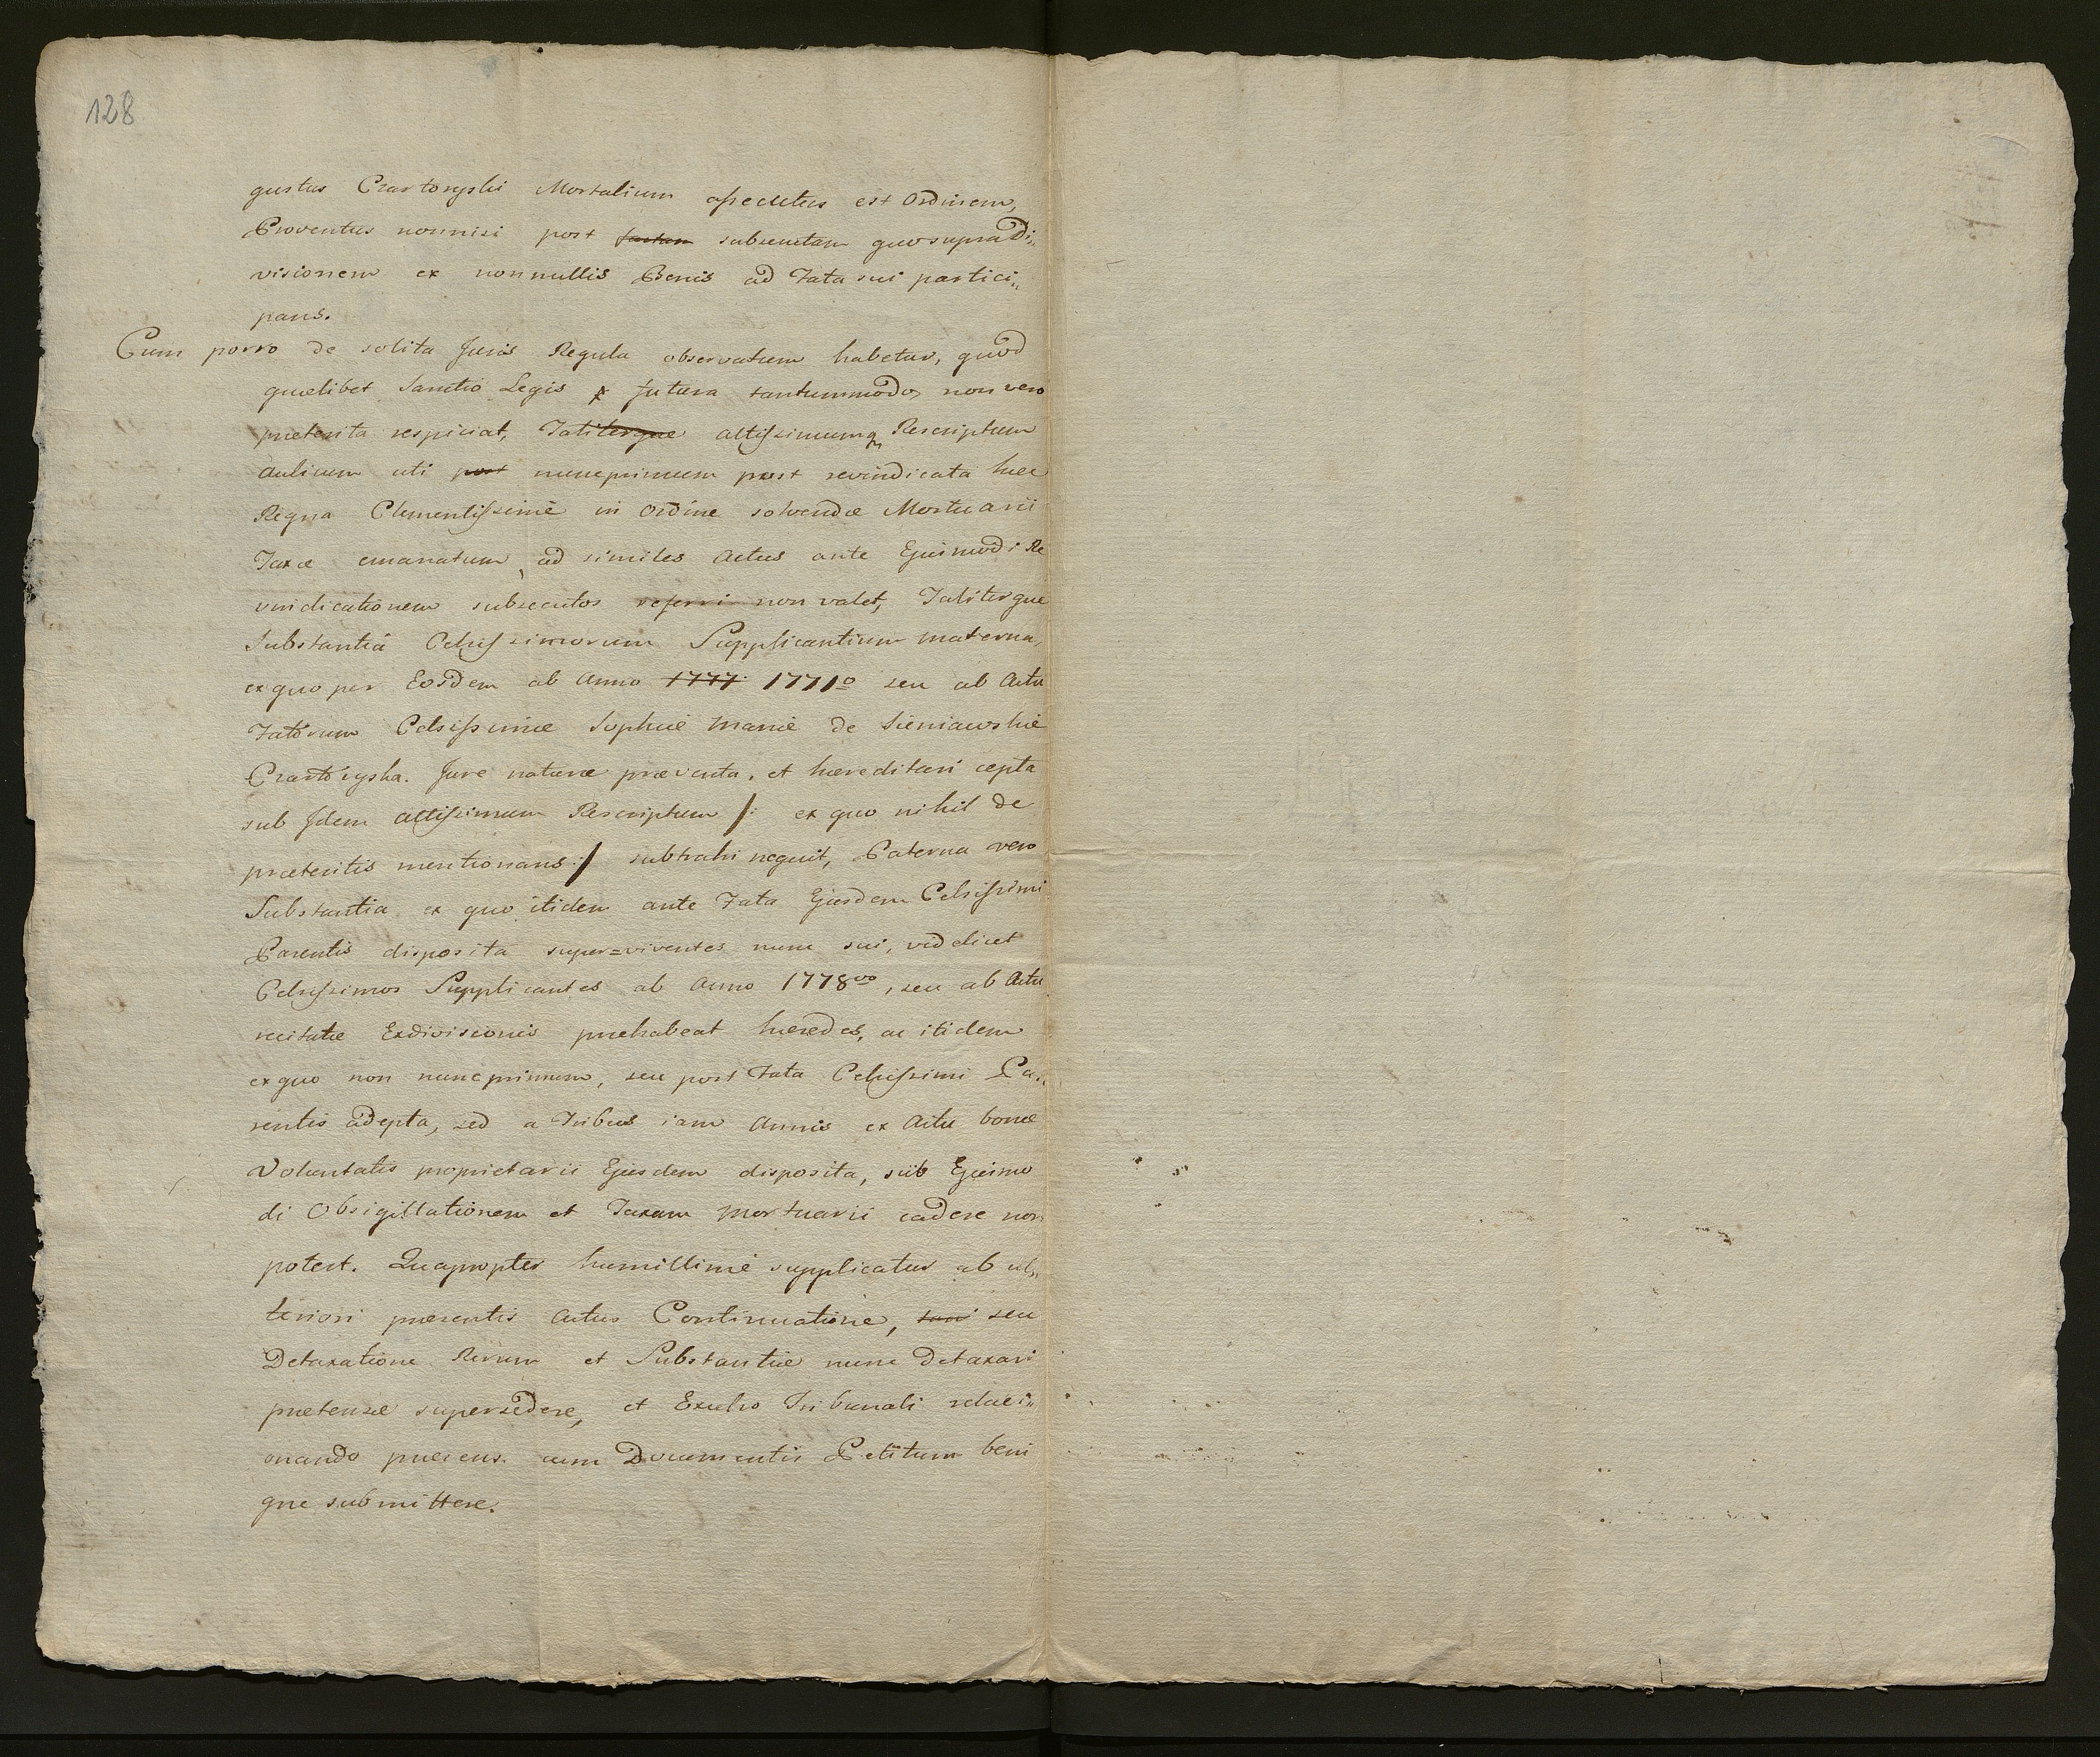 128
gustus Czartoryski Mortalium assecutus est Ordinem,
Proventus nonnisi post factam subsecutam quo supra Di„
visionem ex nonnullis Bonis ad Fata sui partici„
pans.
Cum porro de solita Juris Regula observatum habetur, quod
quælibet Sanctio Legis futura tantummodo, non vero
præterita respiciat, Taliterque altissimumq Rescriptum
Aulicum uti post nuncprimum post revindicata hæc
Regna Clementissimè in Ordine solvendæ Mortuarii
Taxæ emanatum, ad similes Actus ante Ejusmodi Re
vindicationem subsecutos referri non valet, Taliterque
Substantiâ Celsissimorum Supplicantium materna,
ex quo per Eosdem ab Anno 1777. 1771º seu ab Actu
Fatorum Celsissimæ Sophiæ Mariæ de Sieniawskie
Czartoryska. Jure naturæ præventa, et hæreditari cepta
sub Idem altissimum Rescriptum /: ex quo nihil de
præteritis mentionans :/ subtrahi nequit, Paterna vero
Substantia ex quo itidem ante Fata Ejusdem Celsissimi
Parentis disposita super=viventes nunc sui, videlicet
Celsissimos Supplicantes ab Anno 1778vo, seu ab Actu
recitatæ Exdivisionis præhabeat hæredes, ac itidem
ex quo non nuncprimum, seu post Fata Celsissimi Pa„
rentis adepta, sed a Tribus iam Annis ex Actu bonæ
Voluntatis proprietarii Ejusdem disposita, sub Ejusmo
di Obsigillationem et Taxam Mortuarii cadere non
potest. Quapropter humillimè supplicatur ab ul„
teriori præsentis Actus Continuatione, seu
Detaxatione Rerum et Substantiæ nunc Detaxari
prætensæ supersedere, et Excelso Tribunali relaci„
onando præsens. cum Documentis Petitum beni
gne submittere.